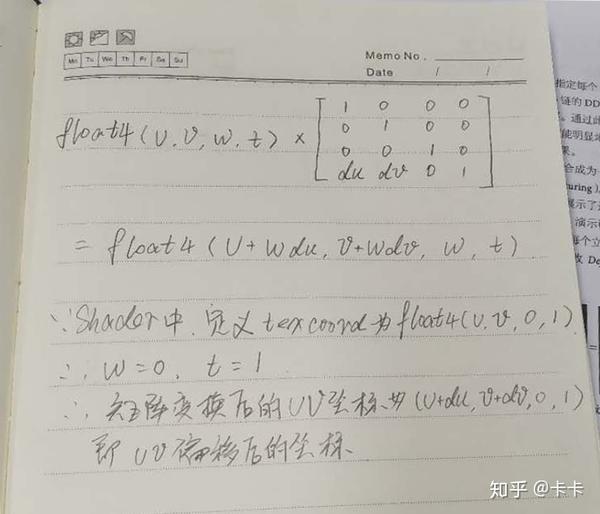 Mo Tu We Th Fr Sa Su
Memo No.
Date / /
float4(u, v, w, t) × [ 1 0 0 0
0 1 0 0
0 0 1 0
du dv 0 1 ]
= float4 (u + wdu, v+wdv, w, t)
∵ Shader中, 定义texcoord为float4(u,v,0,1)
∴ w=0, t=1
∴ 矩阵变换后的UV坐标为(u+du,v+dv,0,1)
即 UV偏移后的坐标.
指定每个
链的DD
。通过此
能明显地
果。
合成为一
turing)
展示了
演示
每个立
改 De
知乎 @卡卡